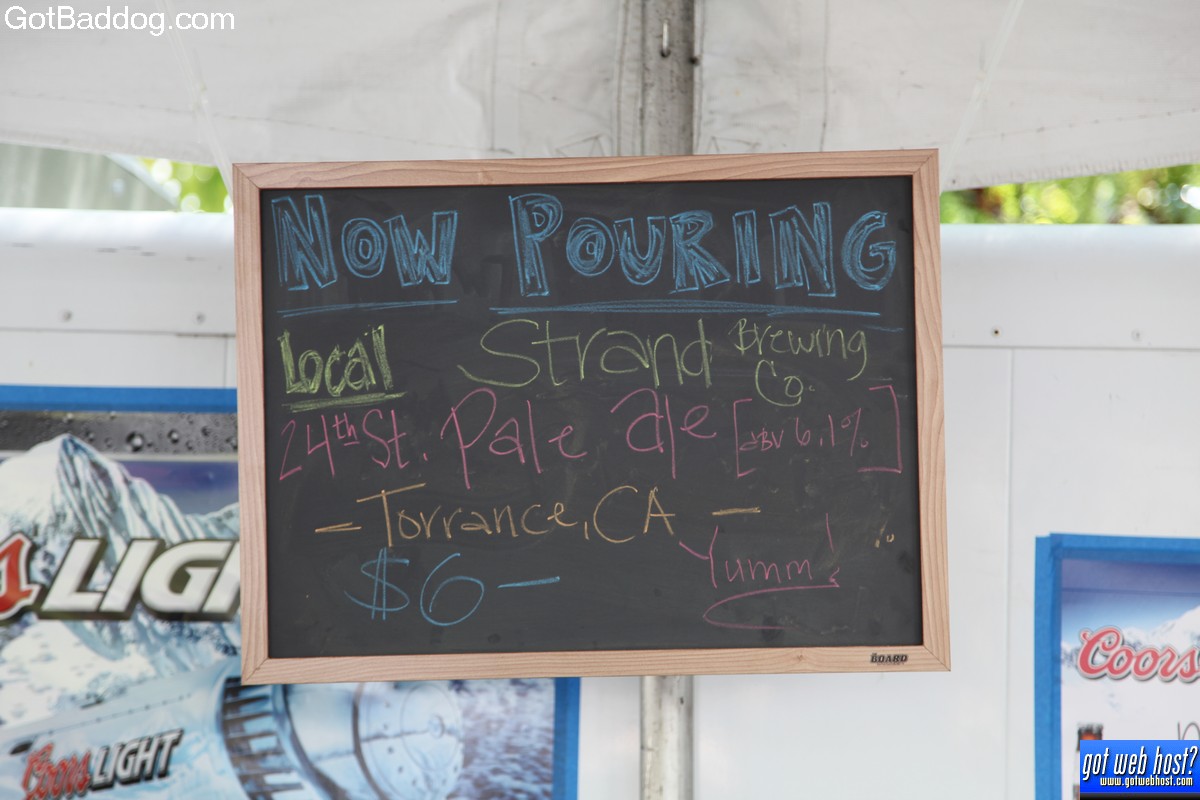 GotBaddog.com
NOW POURING
Local Strand Brewing Co.
24th St. Pale Ale [ABV 6.1%]
- Torrance, CA -
$6 - Yumm!
BOARD
LIG
Coors LIGHT
Coors
got web host?
www.gotwebhost.com